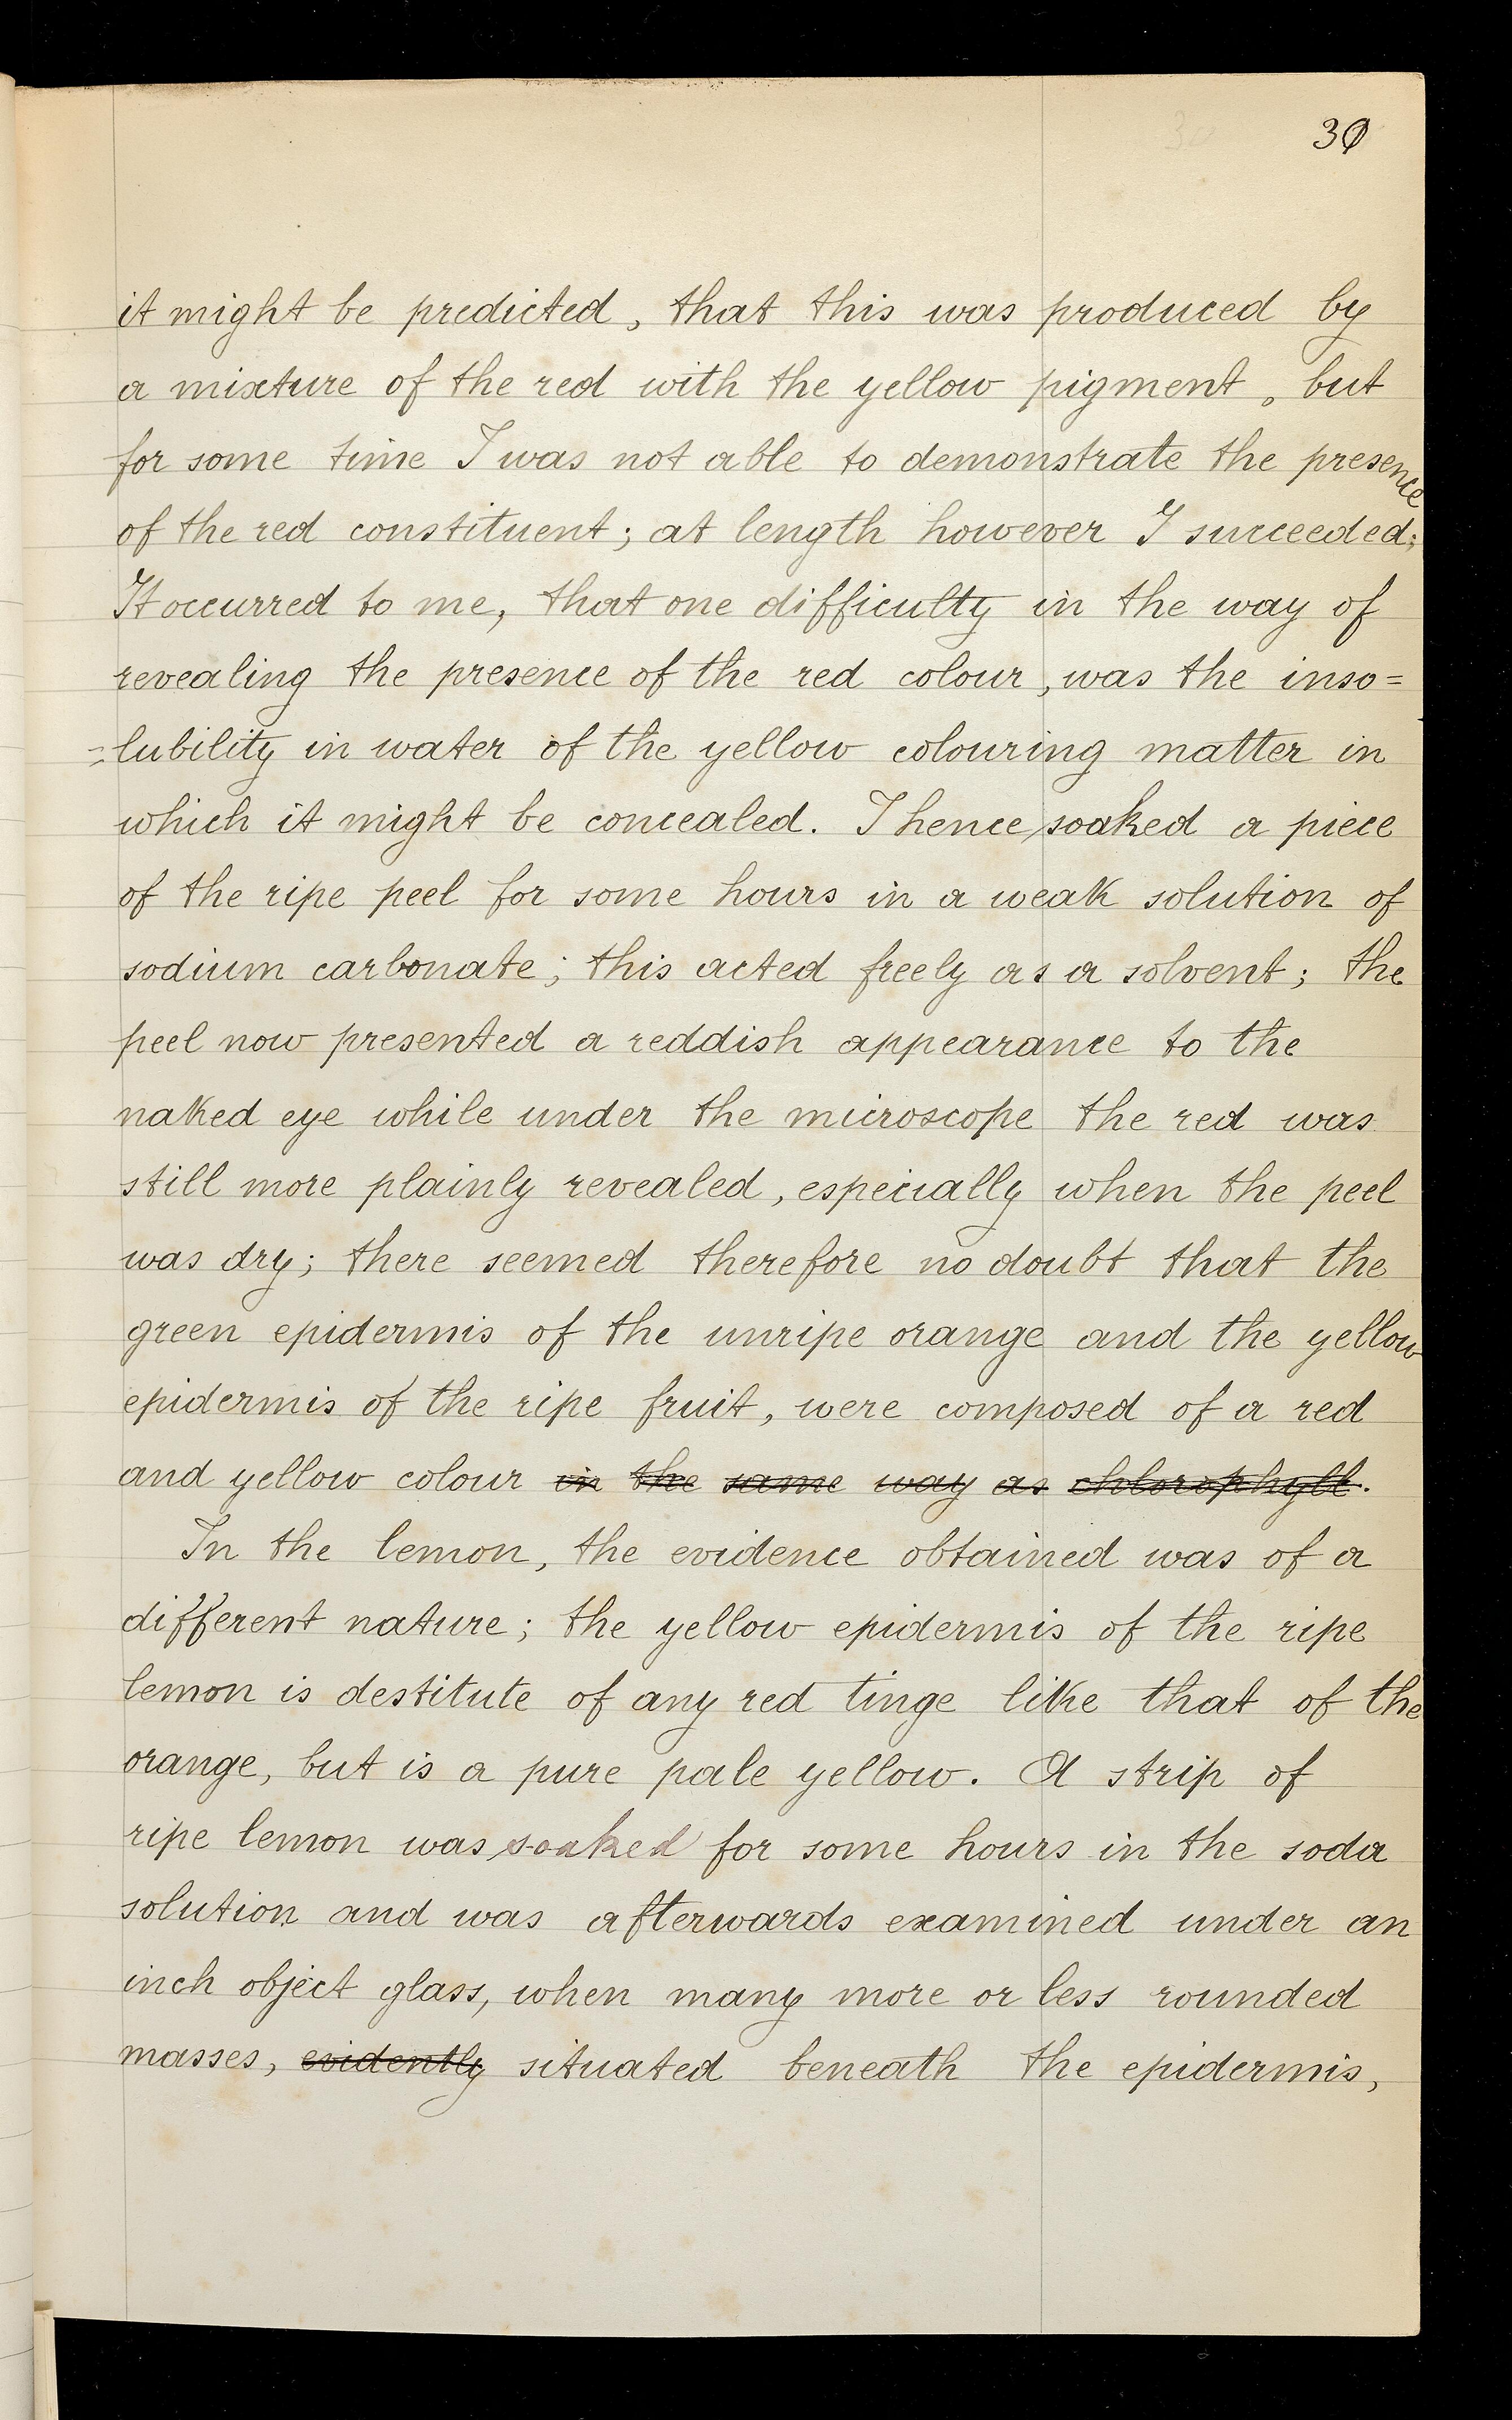 30
it might be predicted, that this was produced by
a mixture of the red with the yellow pigment, but
for some time I was not able to demonstrate the presence
of the red constituent; at length however I succeeded;
It occurred to me, that one difficulty in the way of
revealing the presence of the red colour, was the inso=
=lubility in water of the yellow colouring matter in
which it might be concealed. I hence soaked a piece
of the ripe peel for some hours in a weak solution of
sodium carbonate; this acted freely as a solvent; the
peel now presented a reddish appearance to the
naked eye while under the microscope the red was
still more plainly revealed, especially when the peel
was dry; there seemed therefore no doubt that the
green epidermis of the unripe orange and the yellow
epidermis of the ripe fruit, were composed of a red
and yellow colour in the same way as chlorophyll.
In the lemon, the evidence obtained was of a
different nature; the yellow epidermis of the ripe
lemon is destitute of any red tinge like that of the
orange, but is a pure pale yellow. A strip of
ripe lemon was soaked for some hours in the soda
solution and was afterwards examined under an
inch object glass, when many more or less rounded
masses, evidently situated beneath the epidermis,